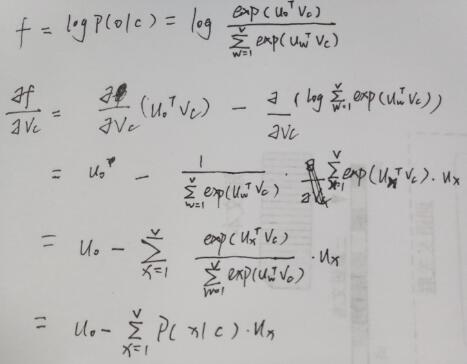 f = log P(o|c) = log \frac{exp(u_o^T v_c)}{\sum_{w=1}^{V} exp(u_w^T v_c)}
\frac{∂f}{∂v_c} = \frac{∂}{∂v_c} (u_o^T v_c) - \frac{∂}{∂v_c} (log \sum_{w=1}^{V} exp(u_w^T v_c))
= u_o - \frac{1}{\sum_{w=1}^{V} exp(u_w^T v_c)} · \sum_{x=1}^{V} exp(u_x^T v_c) · u_x
= u_o - \sum_{x=1}^{V} \frac{exp(u_x^T v_c)}{\sum_{w=1}^{V} exp(u_w^T v_c)} · u_x
= u_o - \sum_{x=1}^{V} P(x|c) · u_x